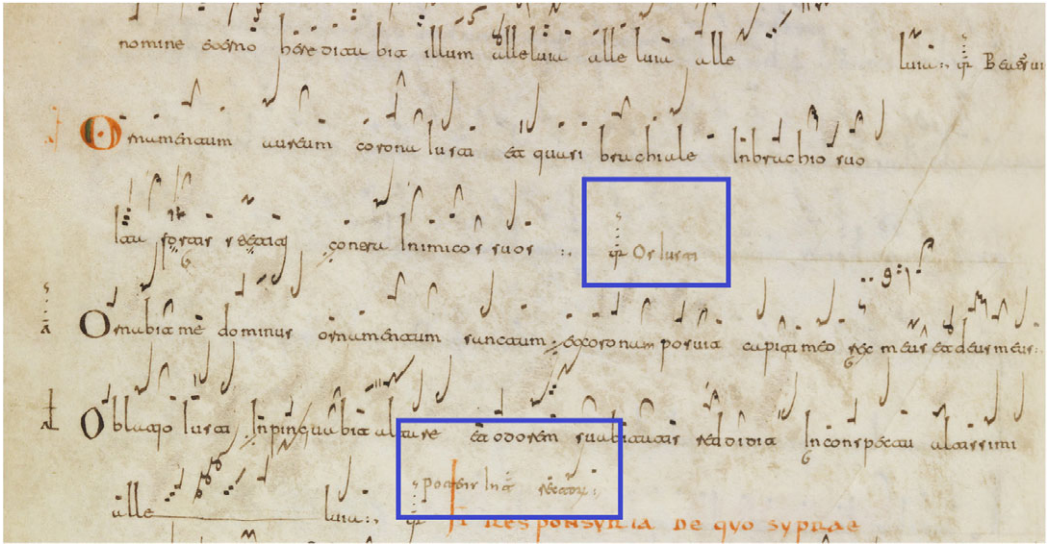 nomine eterno hereditabit illum alleluia alleluia alle luia:
Ornamentum aureum corona iusti et quasi brachiale In brachio suo
contra Inimicos suos :. Os iusti
Ornabit me dominus ornamentum sanctum: et coronam posuit capiti meo rex meus et deus meus:
Oblatio iusti Inpinguabit altare et odorem suabitatis reddidit In conspectu altissimi
alle luia:.
DE QUO SUPRAE